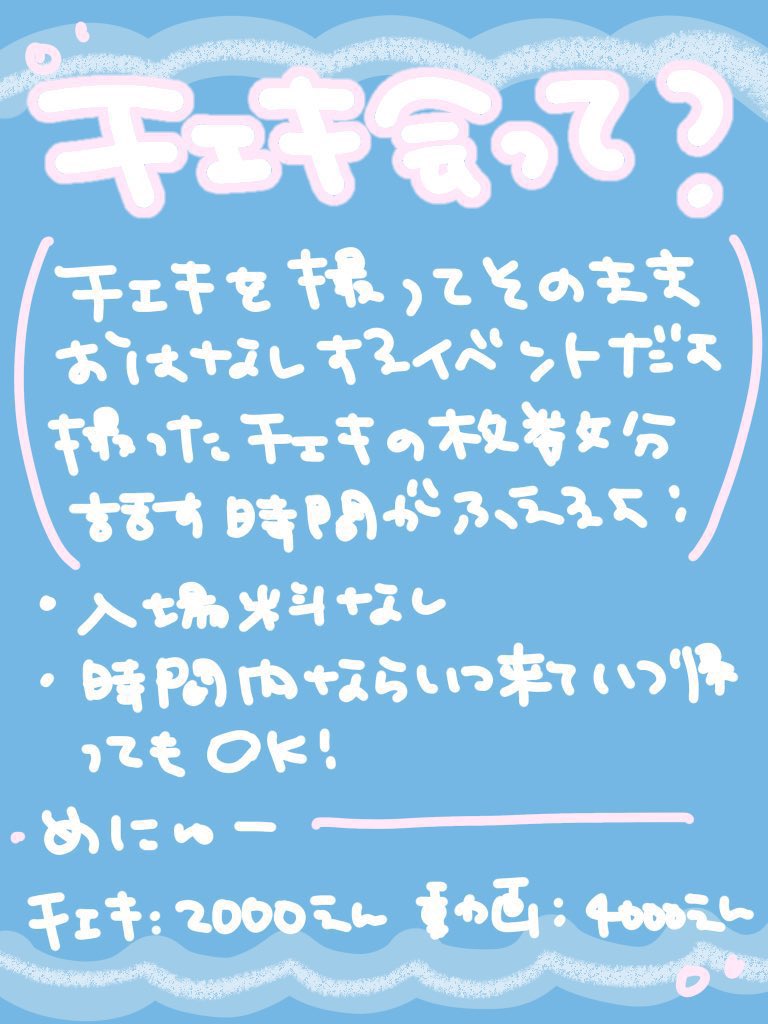 チェキ会って?
チェキを撮ってそのまま
おはなしするイベントだよ
撮ったチェキの枚数分
話す時間がふえるよ:
・入場料なし
・時間内ならいつ来ていつ帰
ってもOK!
・めにゅー
チェキ:2000えん 動画:4000えん